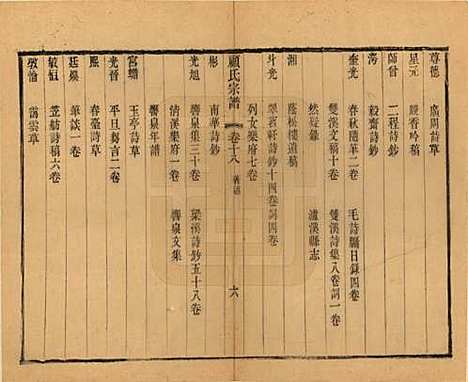 尊德　廣閒詩草
星元　緩香吟鈔
師曾　二程詩鈔
濤　毅齋詩鈔
奎光　春秋隨筆二卷　毛詩屬日錄四卷
雙溪文稿十卷　雙溪詩集八卷詞一卷
然疑錄　瀘溪縣志
湘　蔭松樓遺稿
斗光　翠苕軒詩鈔十四卷詞四卷
列女樂府七卷
顧氏宗譜　卷十八　著述　六
彬　南華詩鈔
光旭　響泉集三十卷　梁溪詩鈔五十八卷
清溪樂府一卷　響泉文集
響泉年譜
宮蟾　玉亭詩草
光晉　平旦芻言二卷
熙　春臺詩草
廷燦　筆談一卷
敏恒　笠舫詩稿六卷
敩愉　靄雲草